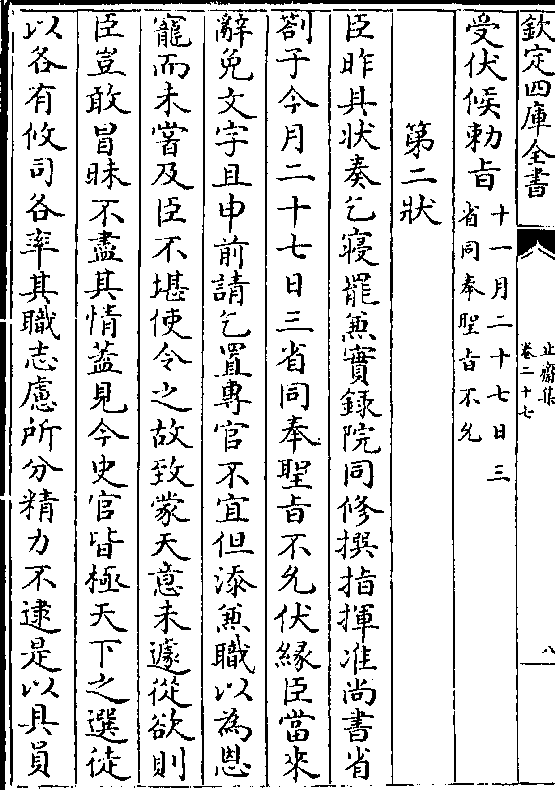 欽定四庫全書
止齋集
卷二十七
八
受伏候勅旨
十一月二十七日三
省同奉聖旨不允
第二狀
臣昨具狀奏乞寢罷兼實録院同修撰指揮准尚書省
劄子今月二十七日三省同奉聖旨不允伏緣臣當來
辭免文字且申前請乞置專官不宜但添兼職以為恩
寵而未甞及臣不堪使令之故致蒙天意未遽從欲則
臣豈敢冒昧不盡其情葢見今史官皆極天下之選徒
以各有攸司各率其職志慮所分精力不逮是以具員